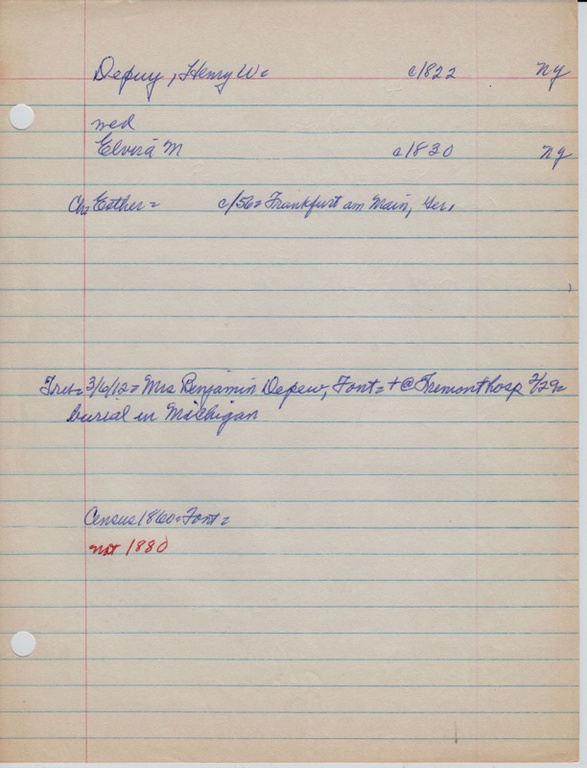 Depuy, Henry W= c/822 NY
med
Elvira M c/830 NY
Ch= Esther= c/56= Frankfurt am Main, Ger.
Trib= 3/6/12= Mrs Benjamin Depew, Font= +@Fremont hosp 2/29=
burial in Michigan
Census 1860= Font=
not 1880